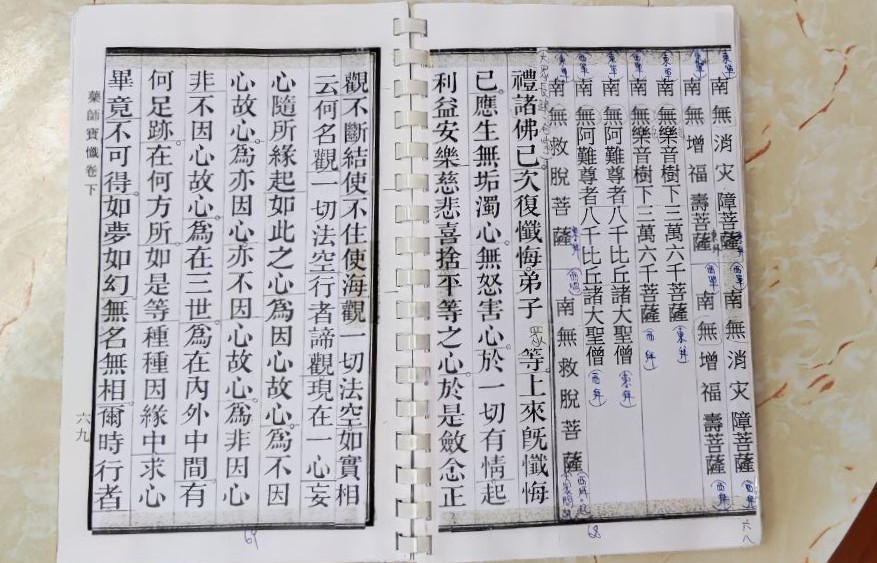 (東单) 南無消灾障菩薩 (西单) 南無消灾障菩薩 (西单)
(東单) 南無增福壽菩薩 (西单) 南無增福壽菩薩 (西单)
(東单) 南無樂音樹下三萬六千菩薩 (東单)
(西单) 南無樂音樹下三萬六千菩薩 (西单)
(東单) 南無阿難尊者八千比丘諸大聖僧 (東单)
(西单) 南無阿難尊者八千比丘諸大聖僧 (西单)
(東单) 南無救脫菩薩 (西单) 南無救脫菩薩
禮諸佛已。次復懺悔。弟子眾等。上來旣懺悔
已。應生無垢濁心。無怒害心。於一切有情。起
利益安樂慈悲喜捨平等之心。於是斂念正
六八
68
觀。不斷結使。不住使海。觀一切法空如實相。
云何名觀一切法空。行者諦觀。現在一心妄
心隨所緣起。如此之心。爲因心故心。爲不因
心故心。爲亦因心亦不因心故心。爲非因心
非不因心故心。爲在三世。爲在內外中間。有
何足跡。在何方所。如是等種種因緣中求心
畢竟不可得。如夢如幻無名無相。爾時行者
藥師寶懺卷下
六九
69